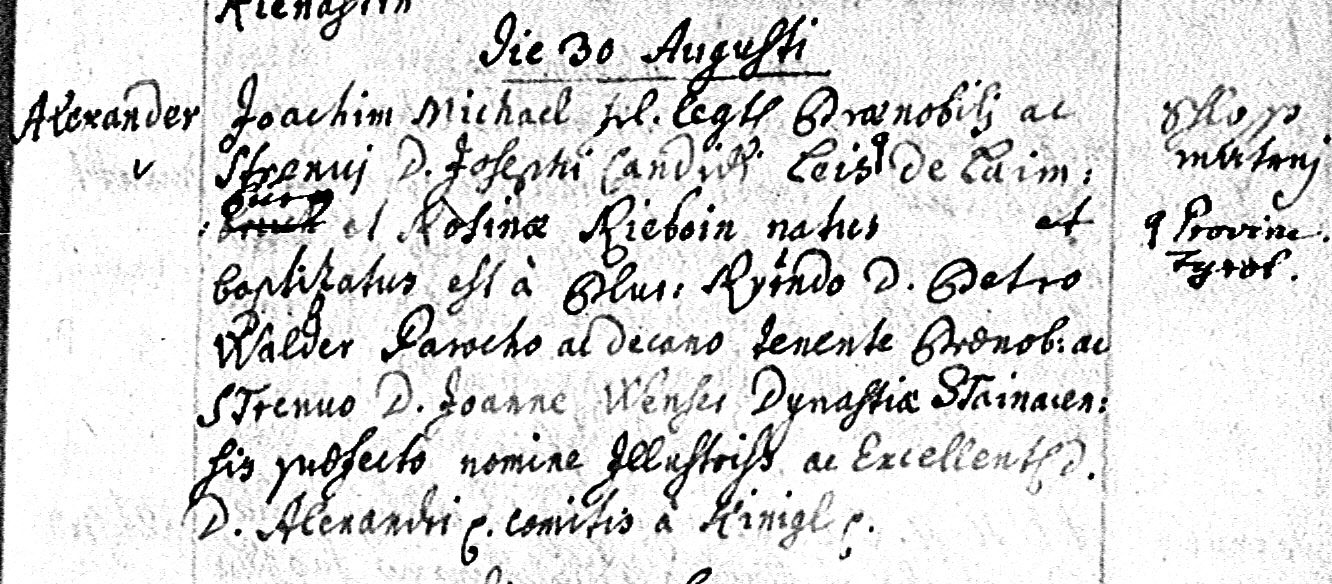 Die 30 Augusti
Alexander
Joachim Michael fil. legtl. Prænobilis ac
Strenui D. Josephi Candidi Leis de Laim:
burg
et Rosinæ Riebin natus et
baptizatus est à Plur: Rrndo D. Petro
Walder Parocho ac Decano tenente Prænob: ac
Strenuo D. Joanne Wenser Dynastiæ Stainacen:
sis præfecto nomine Illustriss ac Excellentiss D.
D. Alexandri p. comitis à Künigl p.
matrnj
Provinc.
Tyrol.